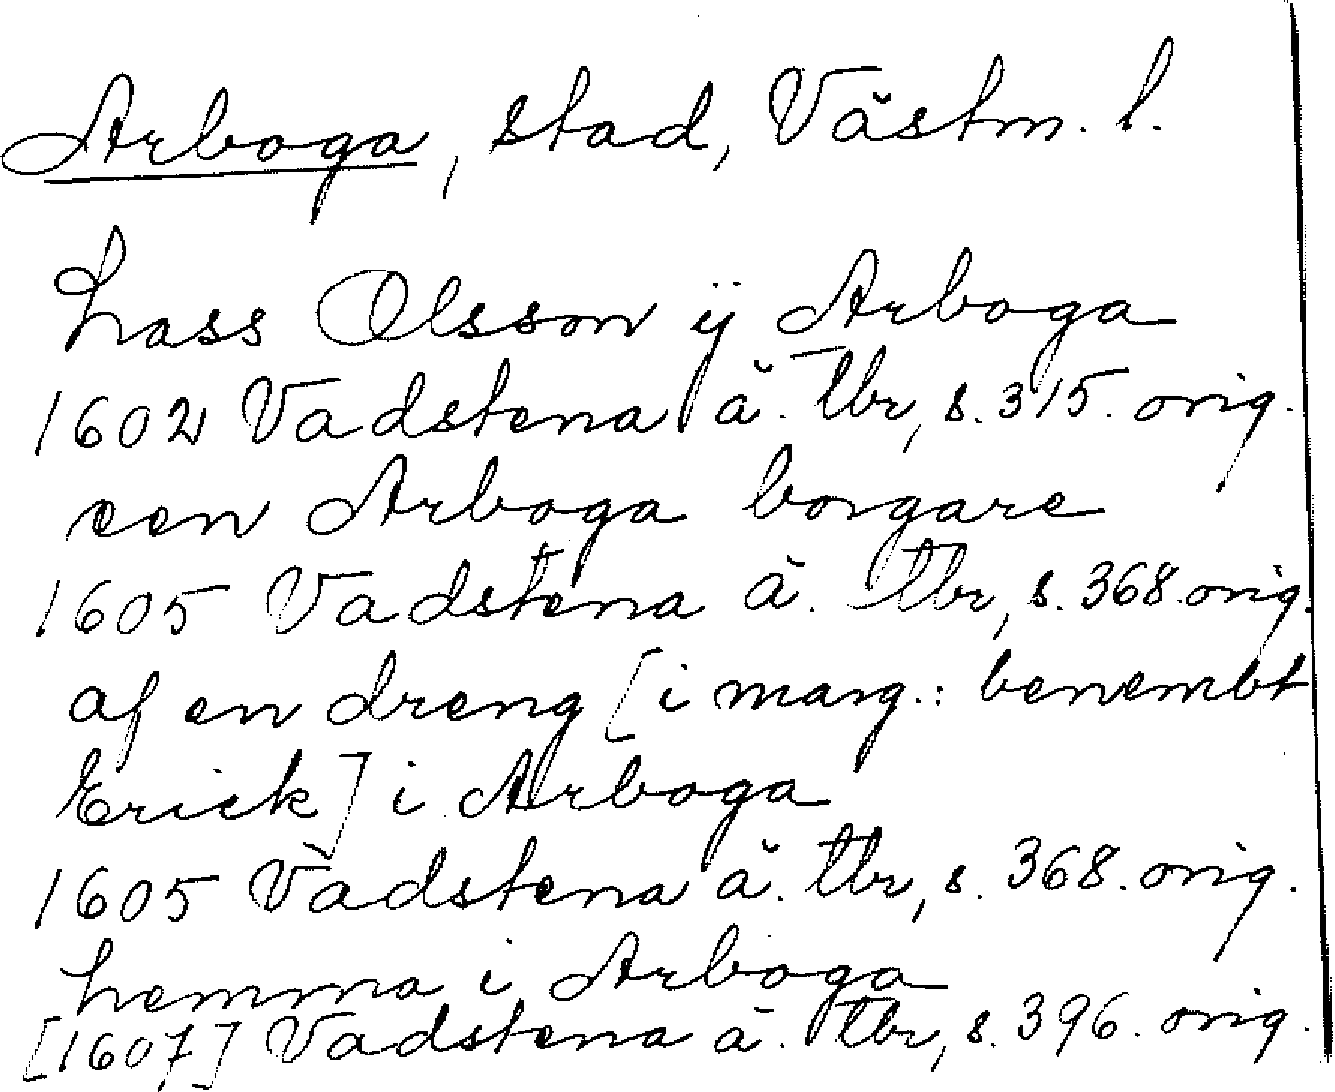 Arboga, stad, Västm. l.
Lass Olsson ÿ Arboga
1602 Vadstena ä. tbr, s. 315. orig.
een Arboga borgare
1605 Vadstena ä. tbr, s. 368. orig.
af en dreng [i marg.: benembt
Erick] i Arboga
1605 Vadstena ä. tbr, s. 368. orig.
hemma i Arboga
[1607] Vadstena ä. tbr, s. 396. orig.